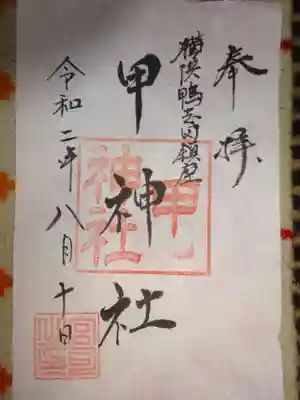 奉拝
横浜鴨志田鎮座
甲神社
令和二年八月十日
甲神社